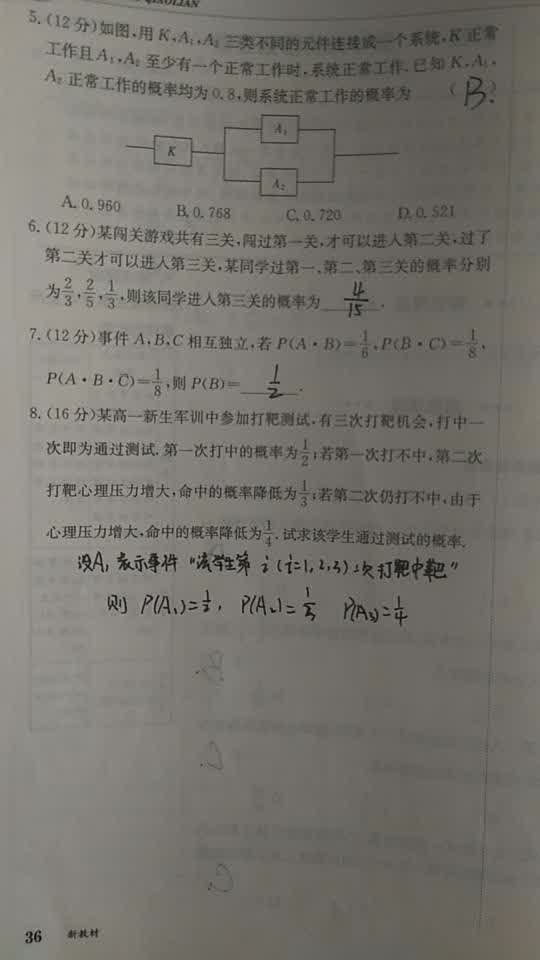 QIAOLIAN
5.(12分)如图,用K,A₁,A₂三类不同的元件连接成一个系统,K正常
工作且A₁,A₂至少有一个正常工作时,系统正常工作.已知K,A₁,
A₂正常工作的概率均为0.8,则系统正常工作的概率为 ( B. )
A₁
K
A₂
A.0.960 B.0.768 C.0.720 D.0.521
6.(12分)某闯关游戏共有三关,闯过第一关,才可以进入第二关,过了
第二关才可以进入第三关,某同学过第一、第二、第三关的概率分别
为2/3,2/5,1/3,则该同学进入第三关的概率为 4/15 .
7.(12分)事件A,B,C相互独立,若P(A·B)=1/6,P(B̄·C)=1/8,
P(A·B·C̄)=1/8,则P(B)= 1/2 .
8.(16分)某高一新生军训中参加打靶测试,有三次打靶机会,打中一
次即为通过测试.第一次打中的概率为1/2;若第一次打不中,第二次
打靶心理压力增大,命中的概率降低为1/3;若第二次仍打不中,由于
心理压力增大,命中的概率降低为1/4.试求该学生通过测试的概率.
设Aᵢ表示事件“该学生第i(i=1,2,3)次打靶中靶”
则 P(A₁)=1/2, P(A₂)=1/3 P(A₃)=1/4
36 新教材